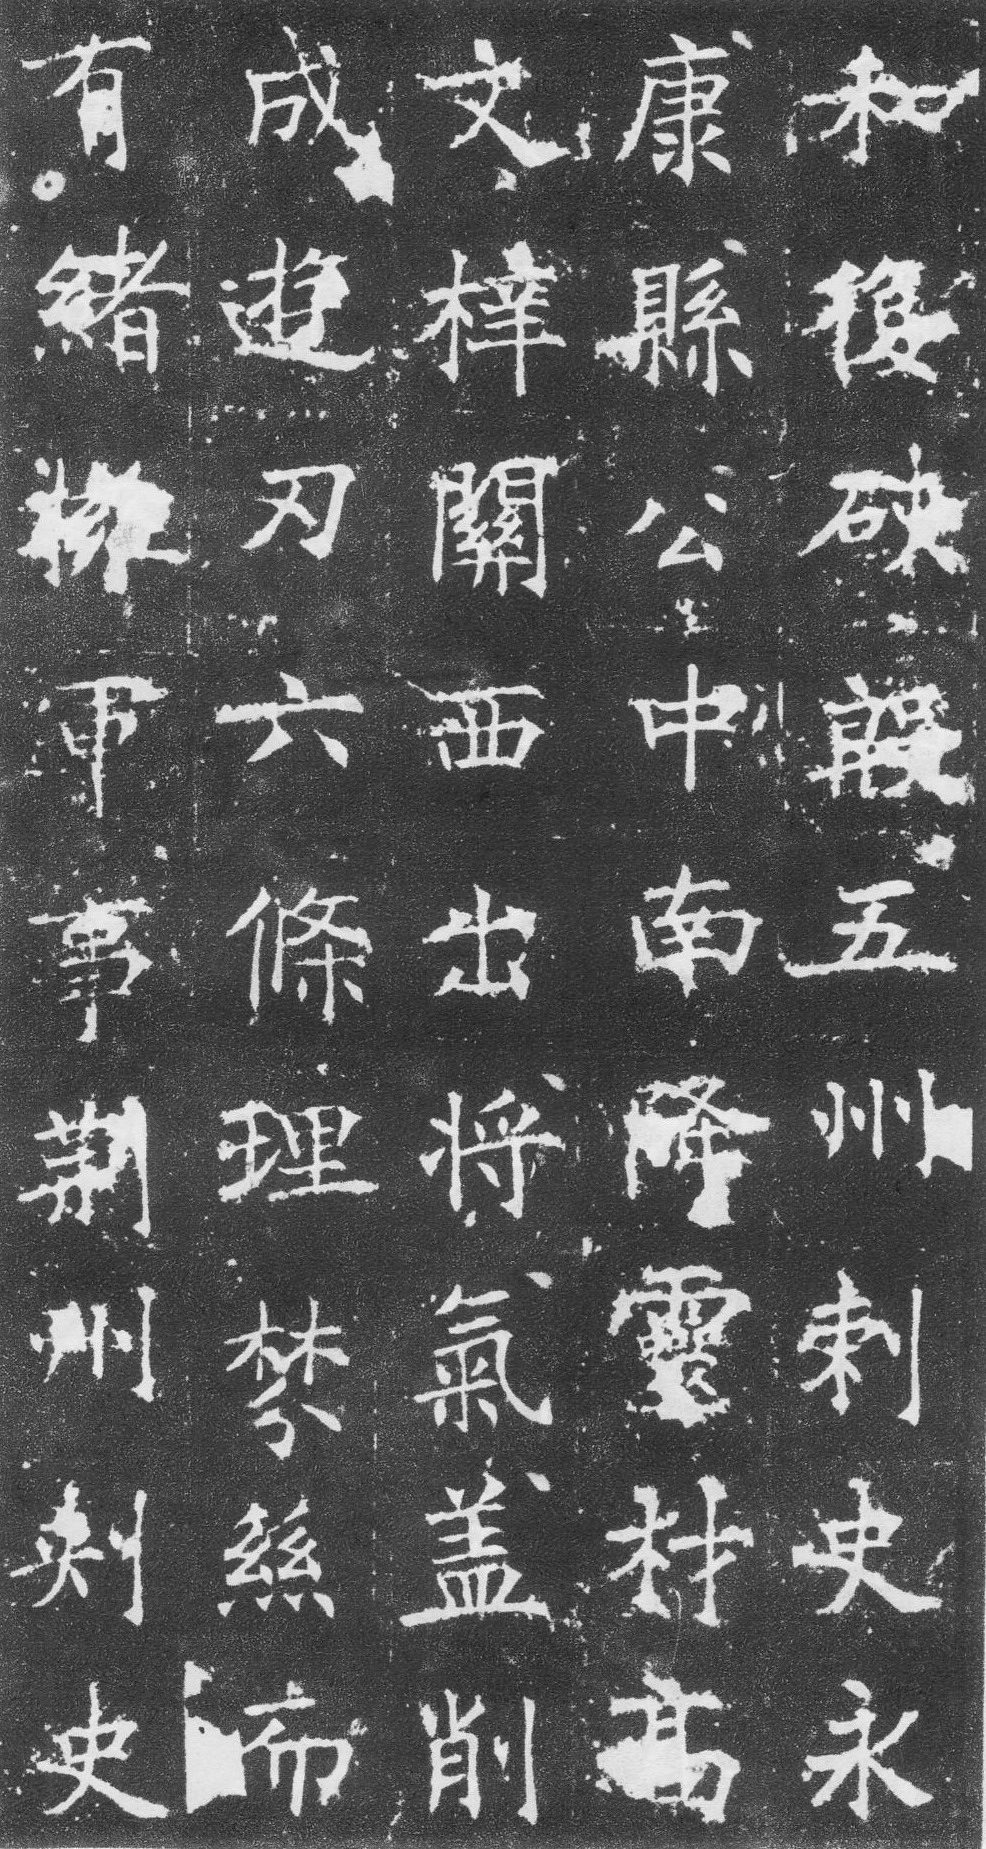 和復硤殷五州刺史永
康縣公中南降靈材高
文梓關西出將氣盖削
成遊刃六條理棼絲而
有緒事荊州刾史